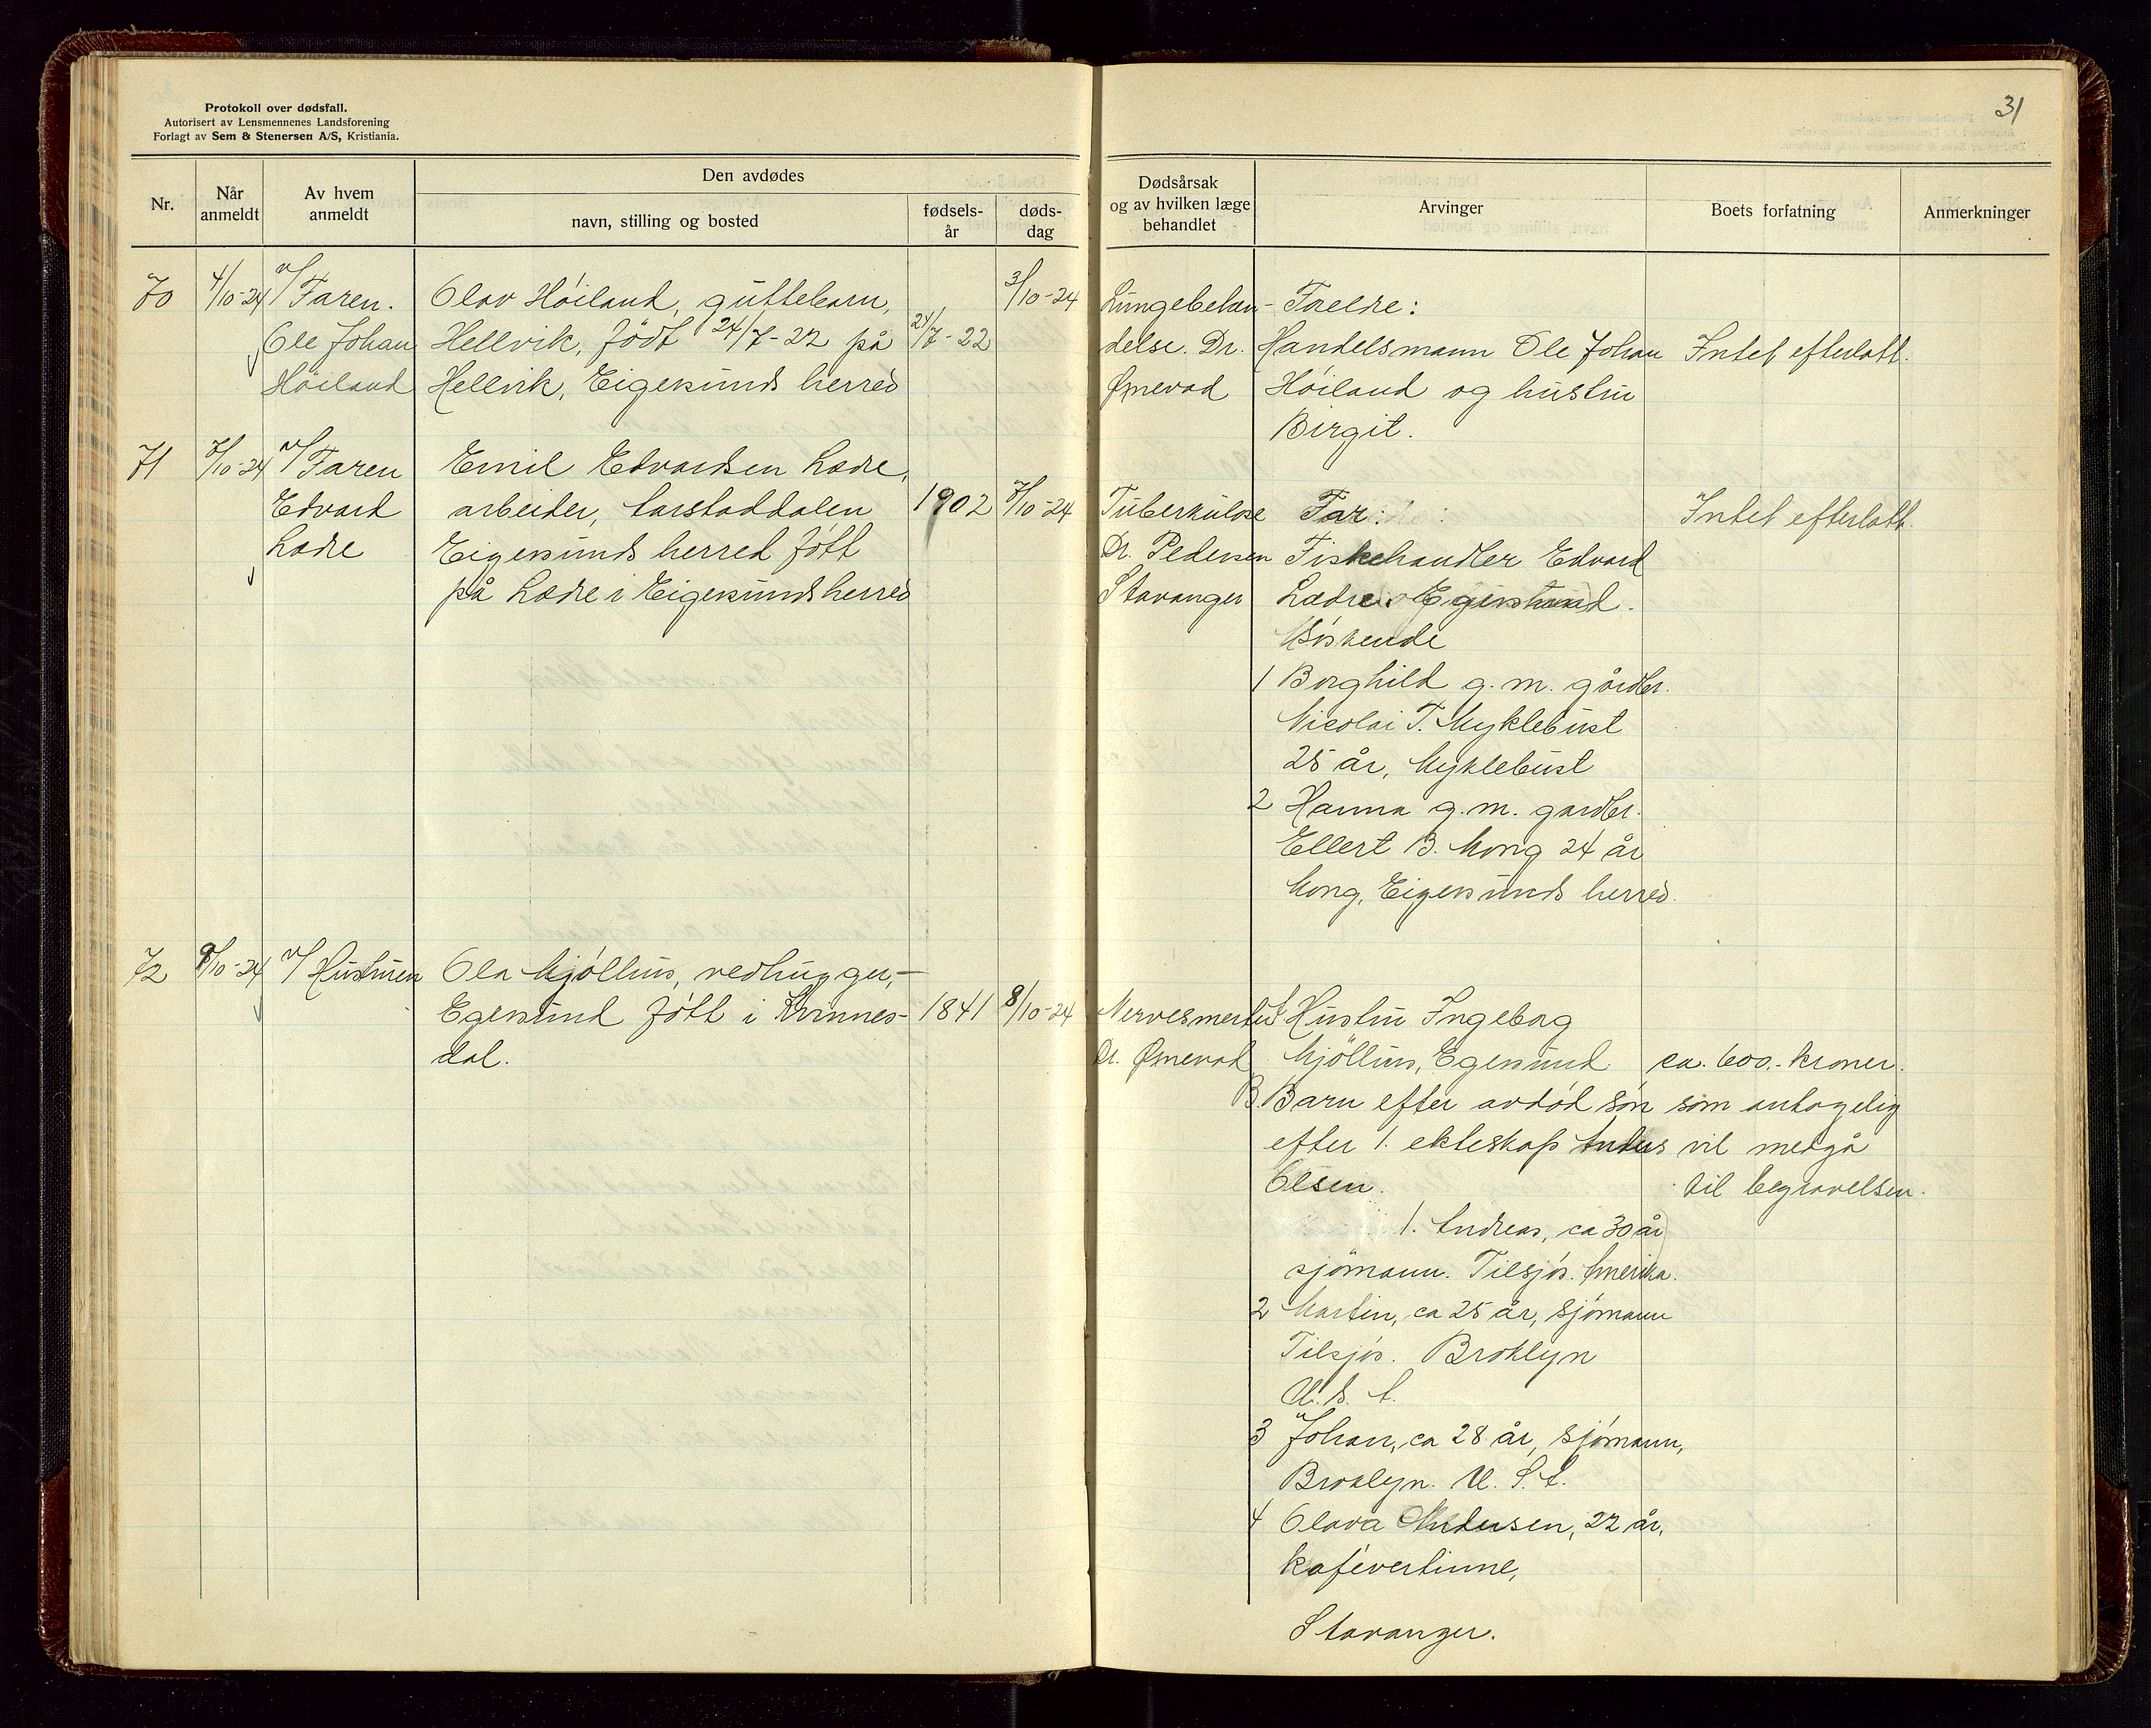 Protokoll over dødsfall.
Autorisert av Lensmennenes Landsforening
Forlagt av Sem & Stenersen A/S, Kristiania.
31
Nr.
Når anmeldt
Av hvem anmeldt
Den avdødes
navn, stilling og bosted
fødselsår
dødsdag
Dødsårsak
og av hvilken læge
behandlet
Arvinger
Boets forfatning
Anmerkninger
70
4/10-24
v/ Faren.
Ole Johan
Höiland
Olav Höiland, guttebarn,
Hellvik, födt 24/7-22 på
Hellvik, Eigersunds herred
24/7-22
3/10-24
Lungebetæn-
delse. Dr.
Ømevad
Foreldre:
Handelsmann Ole Johan
Höiland og hustru
Birgit.
Intet efterlatt.
71
7/10-24
v/ Faren
Edvard
Lædre
Emil Edvardsen Lædre,
arbeider,
Eigersunds herred fött
på Lædre i Eigersunds herred
1902
7/10-24
Tuberkulose
Dr. Pedersen
Stavanger
Far:
Fiskehandler Edvard
Lædre, Egersund.
Söskende
1 Borghild g.m. gårdbr.
Nicolai T. Myklebust
25 år, Myklebust
2 Hanna g.m. gardbr.
Ellert B. Mong 24 år
Mong, Eigersunds herred.
Intet efterlatt.
72
9/10-24
v/ Hustruen
Ola Mjöllus, vedhugger,
Egersund fött i Kvinnes-
dal.
1841
8/10-24
Nervesmerter
Dr. Ømevad
Hustru Ingeborg
Mjöllus, Egersund.
B. Barn efter avdöd sön
efter 1. ekteskap Anders
Olsen.
1. Andreas, ca 30 år
sjömann. Tilsjös. Amerika.
2 Martin, ca 25 år, sjömann
Tilsjös. Broklyn
U.S.A.
3 Johan, ca 28 år, sjömann,
Broklyn. U.S.A.
4 Olava Andersen, 22 år,
kafévertinne,
Stavanger.
ca. 600,- kroner.
som antagelig
vil medgå
til begravelsen.